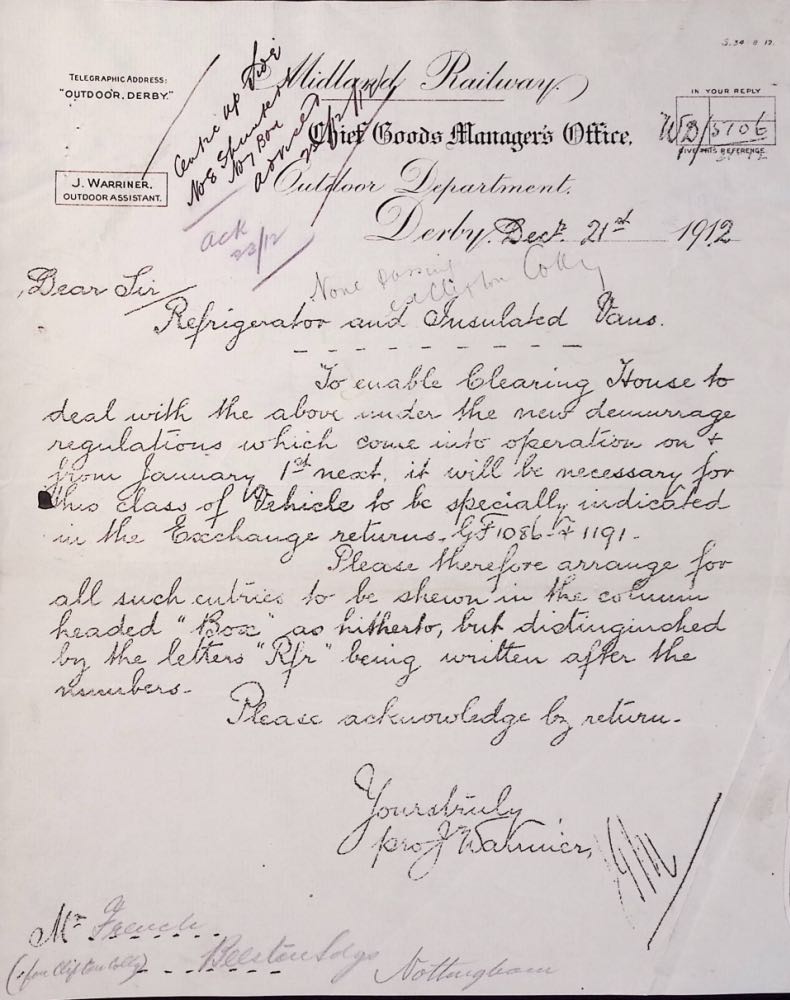 S. 34 8 12.
TELEGRAPHIC ADDRESS:
"OUTDOOR, DERBY."
Midland Railway.
IN YOUR REPLY
WD/5706
GIVE THIS REFERENCE.
Chief Goods Manager's Office,
J. WARRINER,
OUTDOOR ASSISTANT.
Outdoor Department.
Centre up Side
No 8
No 7 Box
advised
Ack
23/12
Derby, Decr. 21st 1912
None passing
Clifton Colly
Dear Sir
Refrigerator and Insulated Vans.
To enable Clearing House to
deal with the above under the new demurrage
regulations which come into operation on &
from January 1st next, it will be necessary for
this class of Vehicle to be specially indicated
in the Exchange returns. GF1086 & 1191.
Please therefore arrange for
all such entries to be shewn in the column
headed "Box" as hitherto, but distinguished
by the letters "Rfr" being written after the
numbers.
Please acknowledge by return.
Yours truly
pro J Warriner,
Mr French
(for Clifton Colly) Beeston Sdgs Nottingham